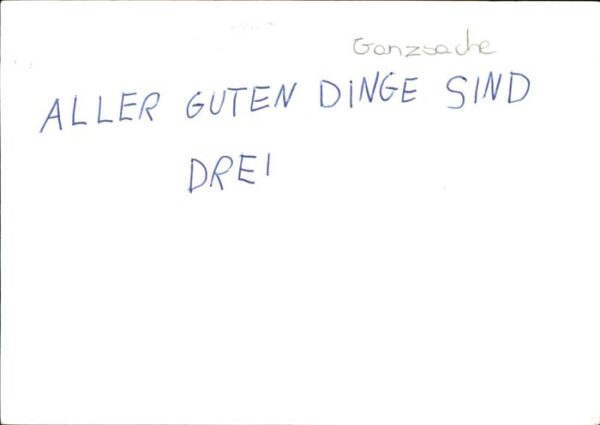 Ganzsache
ALLER GUTEN DINGE SIND
DREI